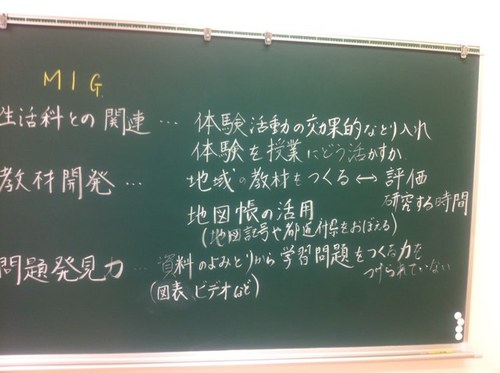 MIG
生活科との関連 … 体験活動の効果的なとり入れ
体験を授業にどう活かすか
教材開発 … 地域の教材をつくる ↔ 評価
研究する時間
地図帳の活用
(地図記号や都道府県をおぼえる)
問題発見力 … 資料のよみとりから学習問題をつくる力を
つけられていない
(図表 ビデオなど)